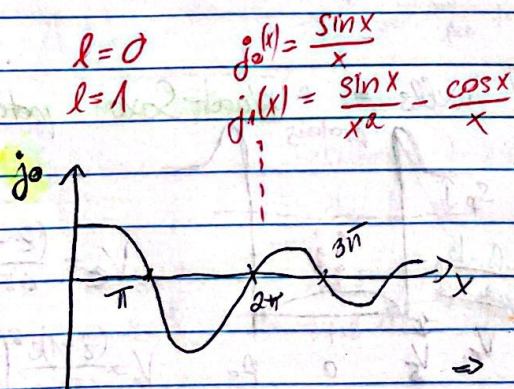 l=0 j₀(x) = sinx/x
l=1 j₁(x) = sinx/x² - cosx/x
j₀
π 2π 3π x
=>